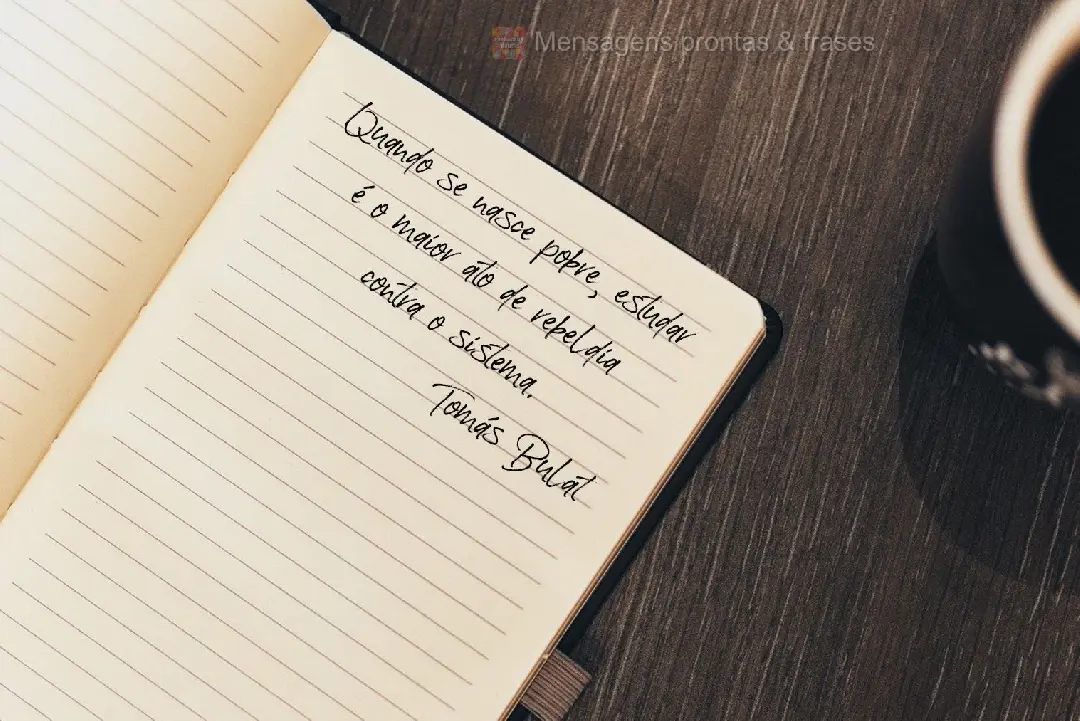 Mensagens prontas & frases
Quando se nasce pobre, estudar
é o maior ato de rebeldia
contra o sistema.
Tomás Bulat